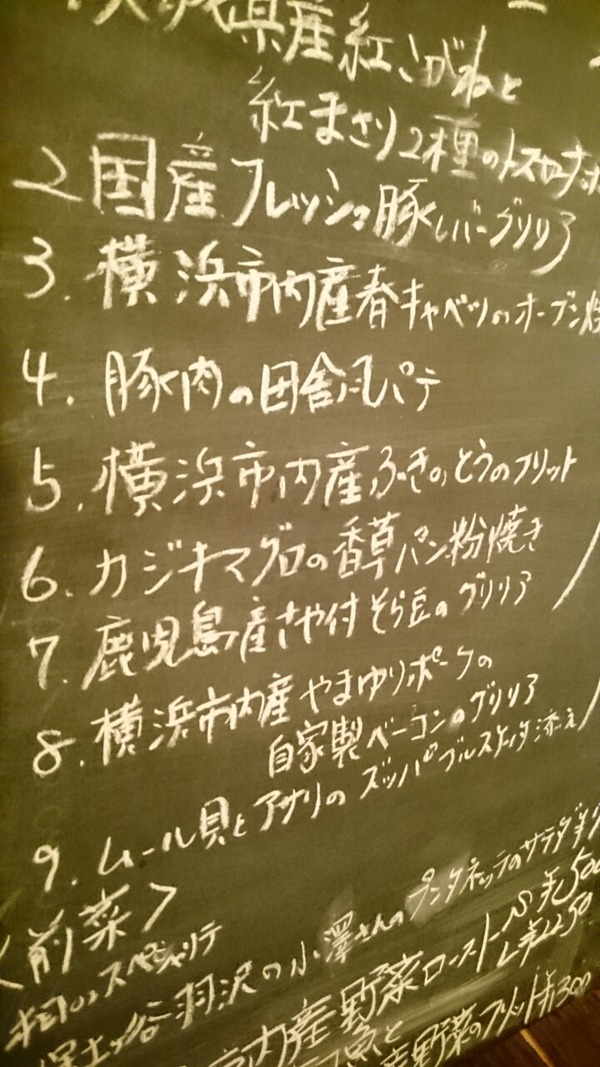 茨城県産紅こがねと
紅まさり2種の
2 国産フレッシュ豚レバーグリリア
3. 横浜市内産春キャベツのオーブン焼
4. 豚肉の田舎風パテ
5. 横浜市内産ふきのとうのフリット
6. カジキマグロの香草パン粉焼き
7. 鹿児島産さや付そら豆のグリリア
8. 横浜市内産やまゆりポークの
自家製ベーコンのグリリア
9. ムール貝とアサリのズッパブルスケッタ添え
<前菜>
スペシャリテ
保土ヶ谷羽沢の小澤さんのプンタレッラのサラダ
市内産野菜ロースト S ¥
L ¥1250
魚と
産野菜のフリット ¥1300